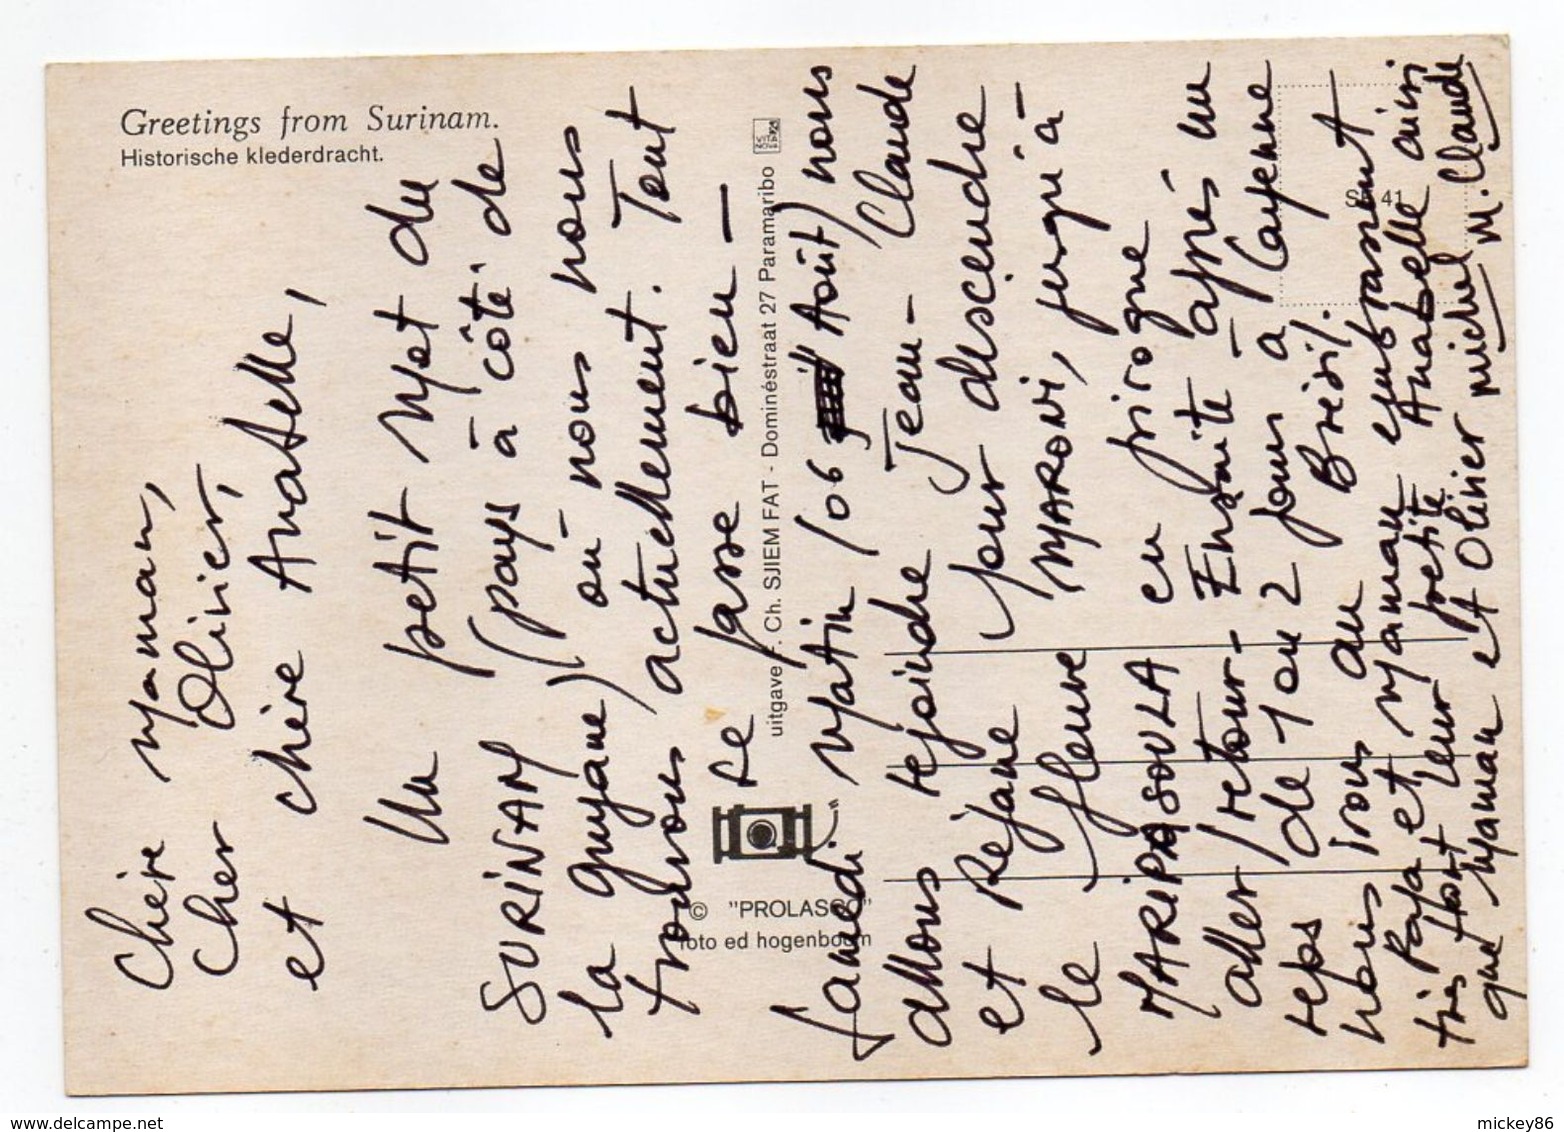 Greetings from Surinam.
Historische klederdracht.
Chère Maman,
Cher Olivier,
et chère Anabelle,
Un petit Mot du
SURINAM (pays à côté de
la Guyane) où nous nous
trouvons actuellement. Tout
se passe bien -
Samedi Matin (06 Août) nous
allons rejoindre Jean-Claude
et Rejane pour descendre
le fleuve MARONI, jusqu'à-
MARIPASOULA en pirogue
aller/retour - Ensuite - après un
reps de 1 ou 2 jours à Cayenne
nous irons au Brésil.
Papa et Maman embrassent
très fort leur petite Anabelle ainsi
que Maman et Olivier Michel M. Claude
uitgave F. Ch. SJIEM FAT - Dominéstraat 27 Paramaribo
VITA NOVA
© "PROLASCO"
foto ed hogenboom
41
mickey86